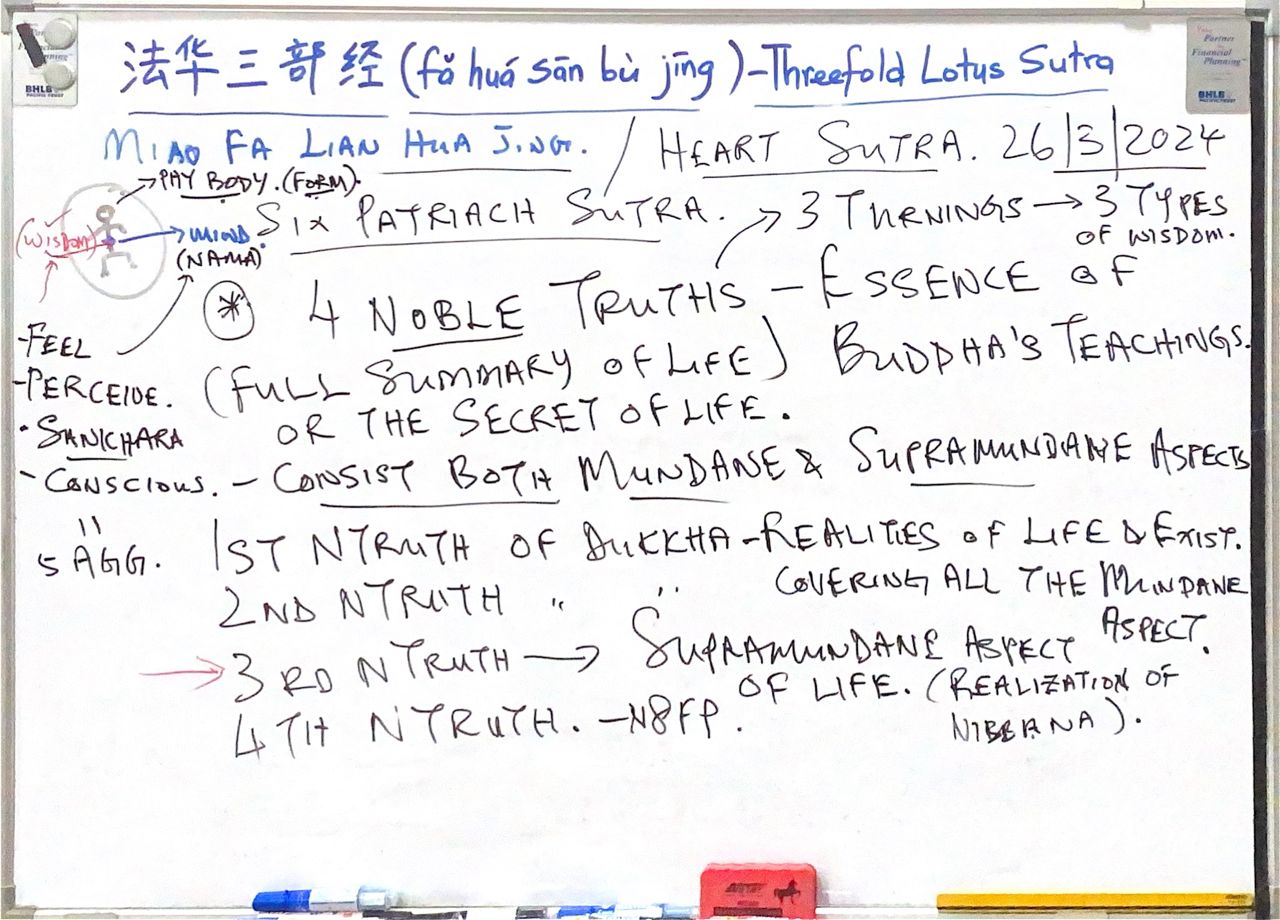 法华三部经 (fǎ huá sān bù jīng) - Threefold Lotus Sutra
MIAO FA LIAN HUA JING. / HEART SUTRA. 26/3/2024
PHY BODY. (FORM).
SIX PATRIACH SUTRA. → 3 TURNINGS → 3 TYPES
OF WISDOM.
(WISDOM) → MIND.
(NAMA)
* 4 NOBLE TRUTHS - ESSENCE OF
BUDDHA'S TEACHINGS.
(FULL SUMMARY OF LIFE)
OR THE SECRET OF LIFE.
- FEEL
- PERCEIVE.
• SANKHARA
- CONSCIOUS.
=
5 AGG.
- CONSIST BOTH MUNDANE & SUPRAMUNDANE ASPECTS
1ST NTRUTH OF DUKKHA - REALITIES OF LIFE & EXIST.
2ND NTRUTH " " COVERING ALL THE MUNDANE
ASPECT.
→ 3RD NTRUTH → SUPRAMUNDANE ASPECT
OF LIFE. (REALIZATION OF
NIBBANA).
4TH NTRUTH. - N8FP.
Your
Partner
in
Financial
Planning
BHLB
PACIFIC TRUST
BHLB